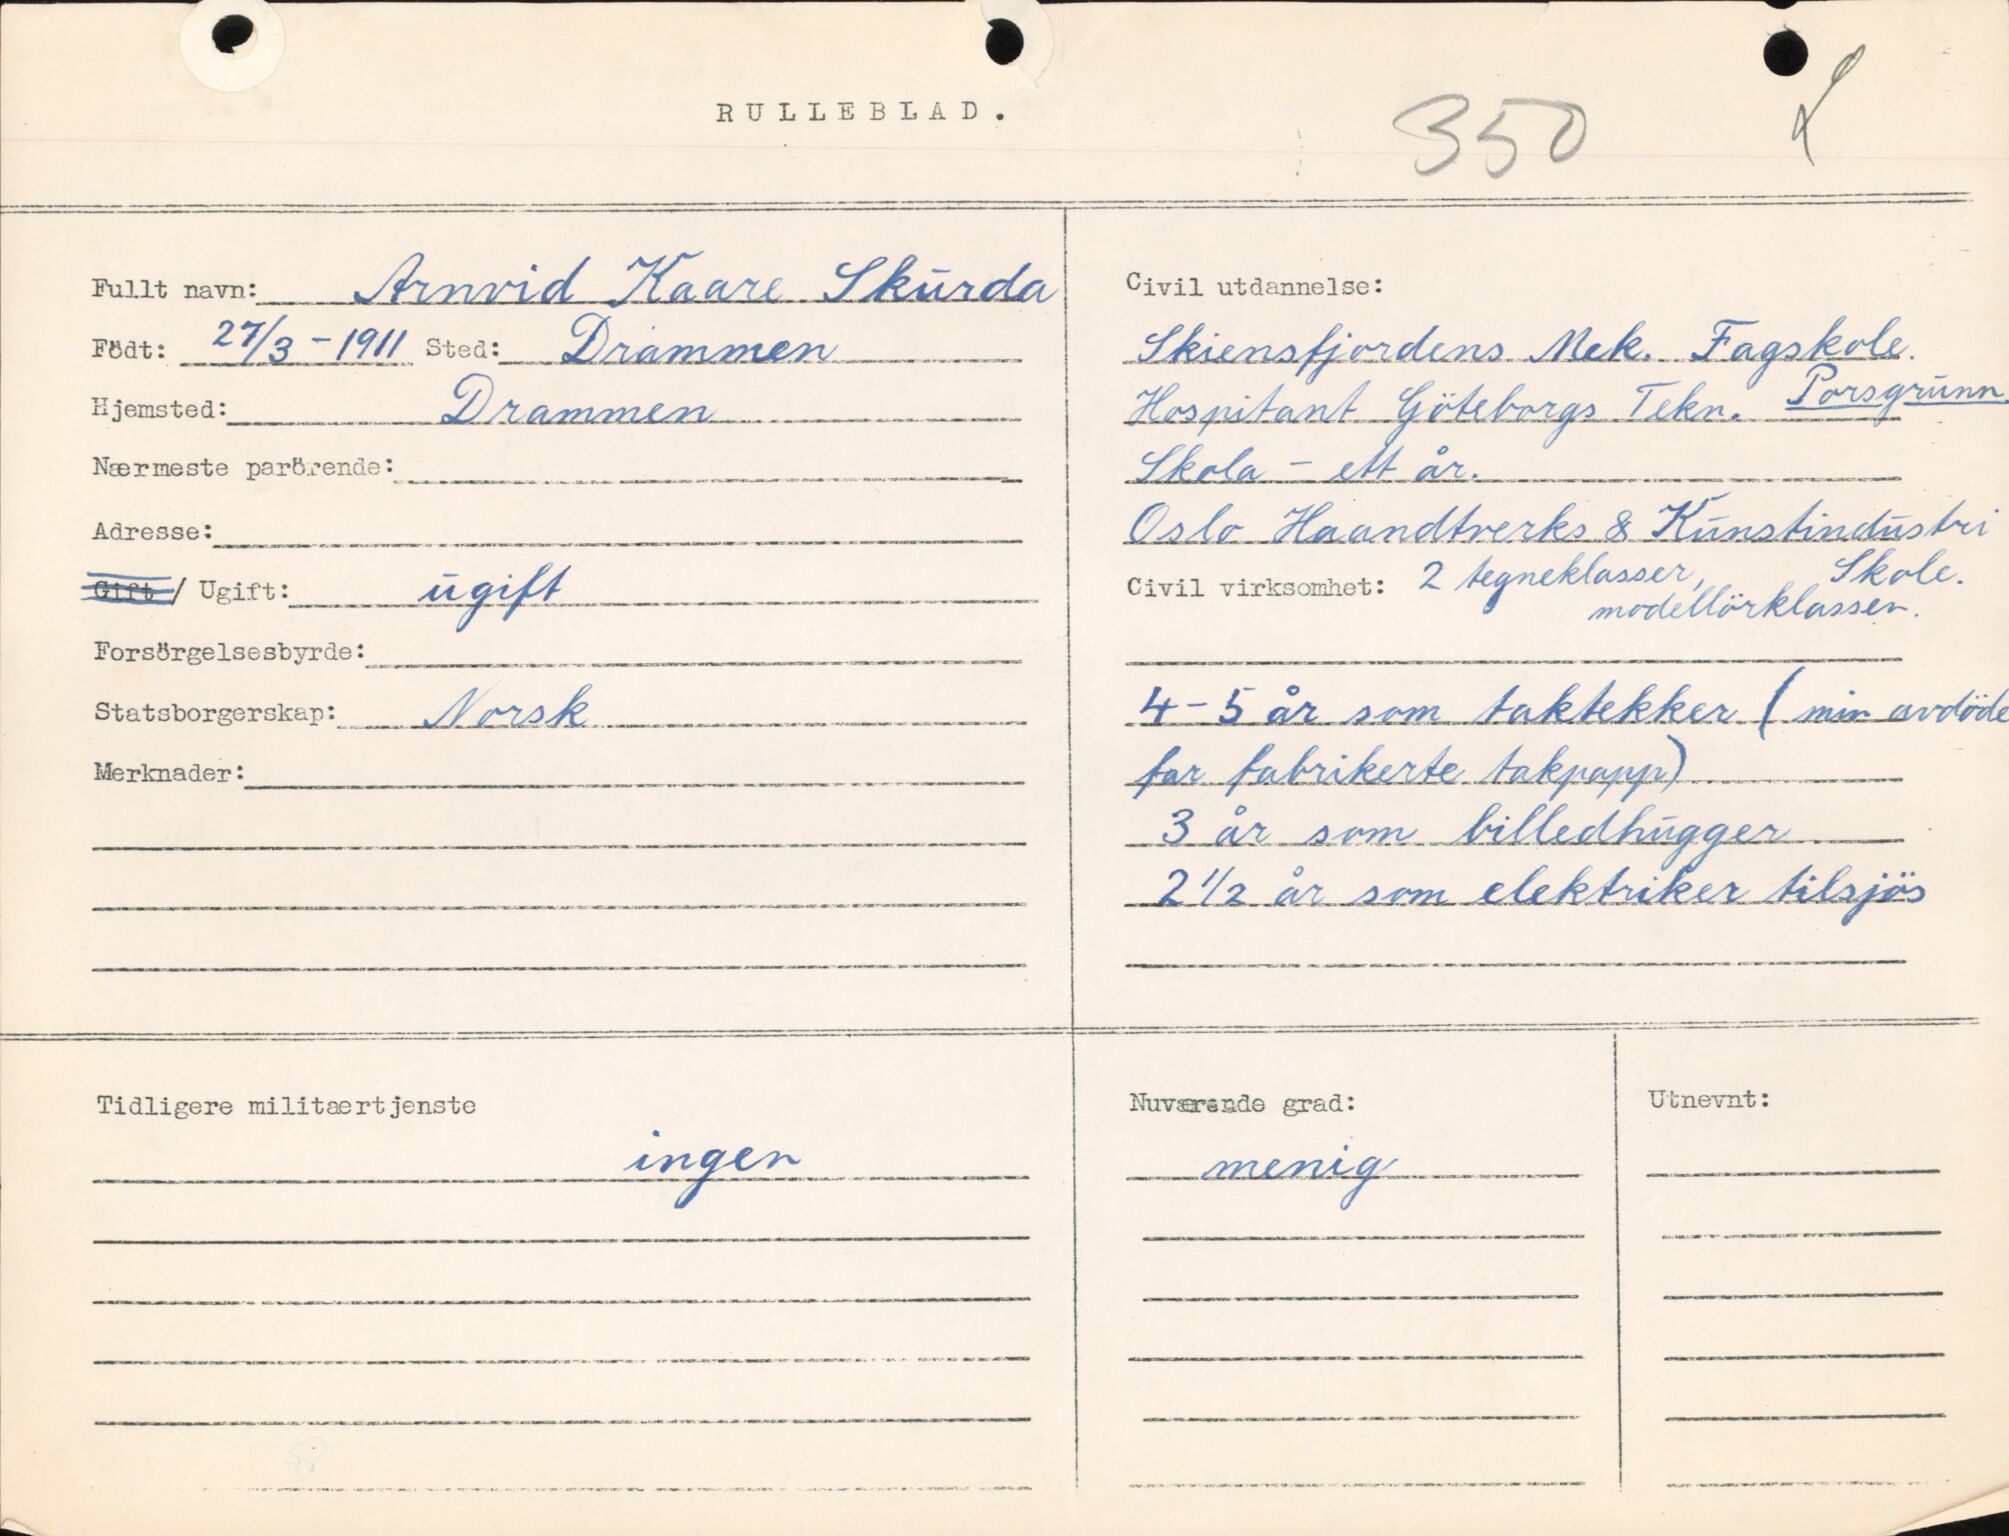 RULLEBLAD.
350
Fullt navn: Arnvid Kaare Skurda
Födt: 27/3-1911 Sted: Drammen
Hjemsted: Drammen
Nærmeste parörende:
Adresse:
Gift / Ugift: ugift
Forsörgelsesbyrde:
Statsborgerskap: Norsk
Merknader:
Civil utdannelse:
Skiensfjordens Mek. Fagskole.
Porsgrunn.
Hospitant Göteborgs Tekn.
Skola - ett år.
Oslo Haandtverks & Kunstindustri
Skole.
Civil virksomhet: 2 tegneklasser,
modellörklassen.
4-5 år som taktekker (min avdöde
far fabrikerte takpapp)
3 år som billedhugger
2 1/2 år som elektriker tilsjös
Tidligere militærtjenste
ingen
Nuværende grad:
menig
Utnevnt: